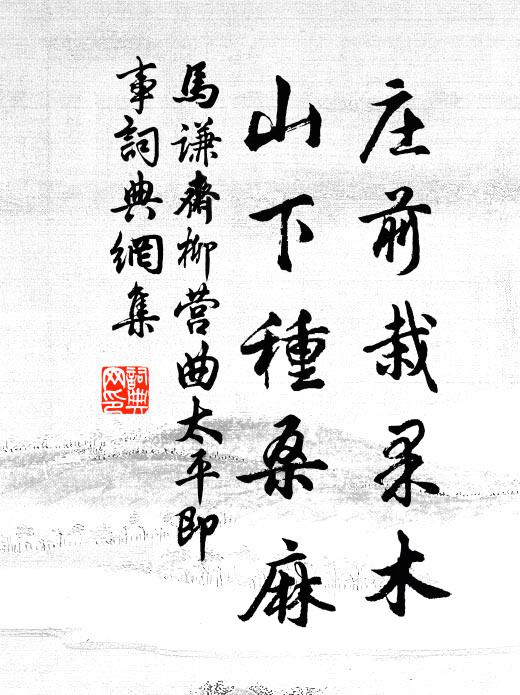 庄前栽果木
山下種桑麻
馬謙齋柳营曲太平即
事詞典網集
詞典網印